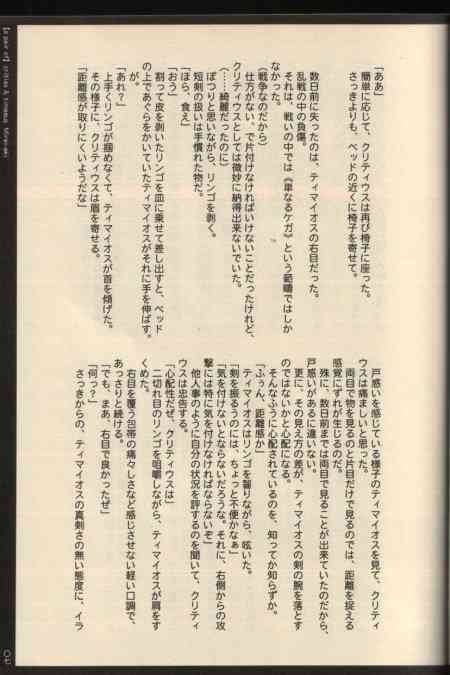 「ああ」
　簡単に応じて、クリティウスは再び椅子に座った。
　さっきよりも、ベッドの近くに椅子を寄せて。
　数日前に失ったのは、ティマイオスの右目だった。
　乱戦の中の負傷。
　それは、戦いの中では《単なるケガ》という範疇ではしか
なかった。
（戦争なのだから）
　仕方がない、で片付けなければいけないことだったけれど、
クリティウスとしては微妙に納得出来ないでいた。
（……綺麗だったのに）
　ぽつりと思いながら、リンゴを剥く。
　短剣の扱いは手慣れた物だ。
「ほら、食え」
「おう」
　割って皮を剥いたリンゴを皿に乗せて差し出すと、ベッド
の上であぐらをかいていたティマイオスがそれに手を伸ばす。
が。
「あれ？」
　上手くリンゴが掴めなくて、ティマイオスが首を傾げた。
　その様子に、クリティウスは眉を寄せる。
「距離感が取りにくいようだな」
　戸惑いを感じている様子のティマイオスを見て、クリティ
ウスは痛ましいと思った。
　両目で物を見るのと片目だけで見るのでは、距離を捉える
感覚にずれが生じるのだ。
　殊に、数日前までは両目で見ることが出来ていたのだから、
戸惑いがあるに違いない。
　更に、その見え方の差が、ティマイオスの剣の腕を落とす
のではないかと心配になる。
　そんなふうに心配されているのを、知ってか知らずか。
「ふぅん、距離感か」
　ティマイオスはリンゴを齧りながら、呟いた。
「剣を振るうのには、ちょっと不便かなぁ」
「気を付けないとならないだろうな。それに、右側からの攻
撃には特に気を付けなければならないぞ」
　他人事のように自分の状況を評するのを聞いて、クリティ
ウスは忠告する。
「心配性だぜ、クリティウスは」
　二切れ目のリンゴを咀嚼しながら、ティマイオスが肩をす
くめた。
　右目を覆う包帯の痛々しさなど感じさせない軽い口調で、
あっさりと続ける。
「でも、まあ、右目で良かったぜ」
「何っ？」
　さっきからの、ティマイオスの真剣さの無い態度に、イラ
07